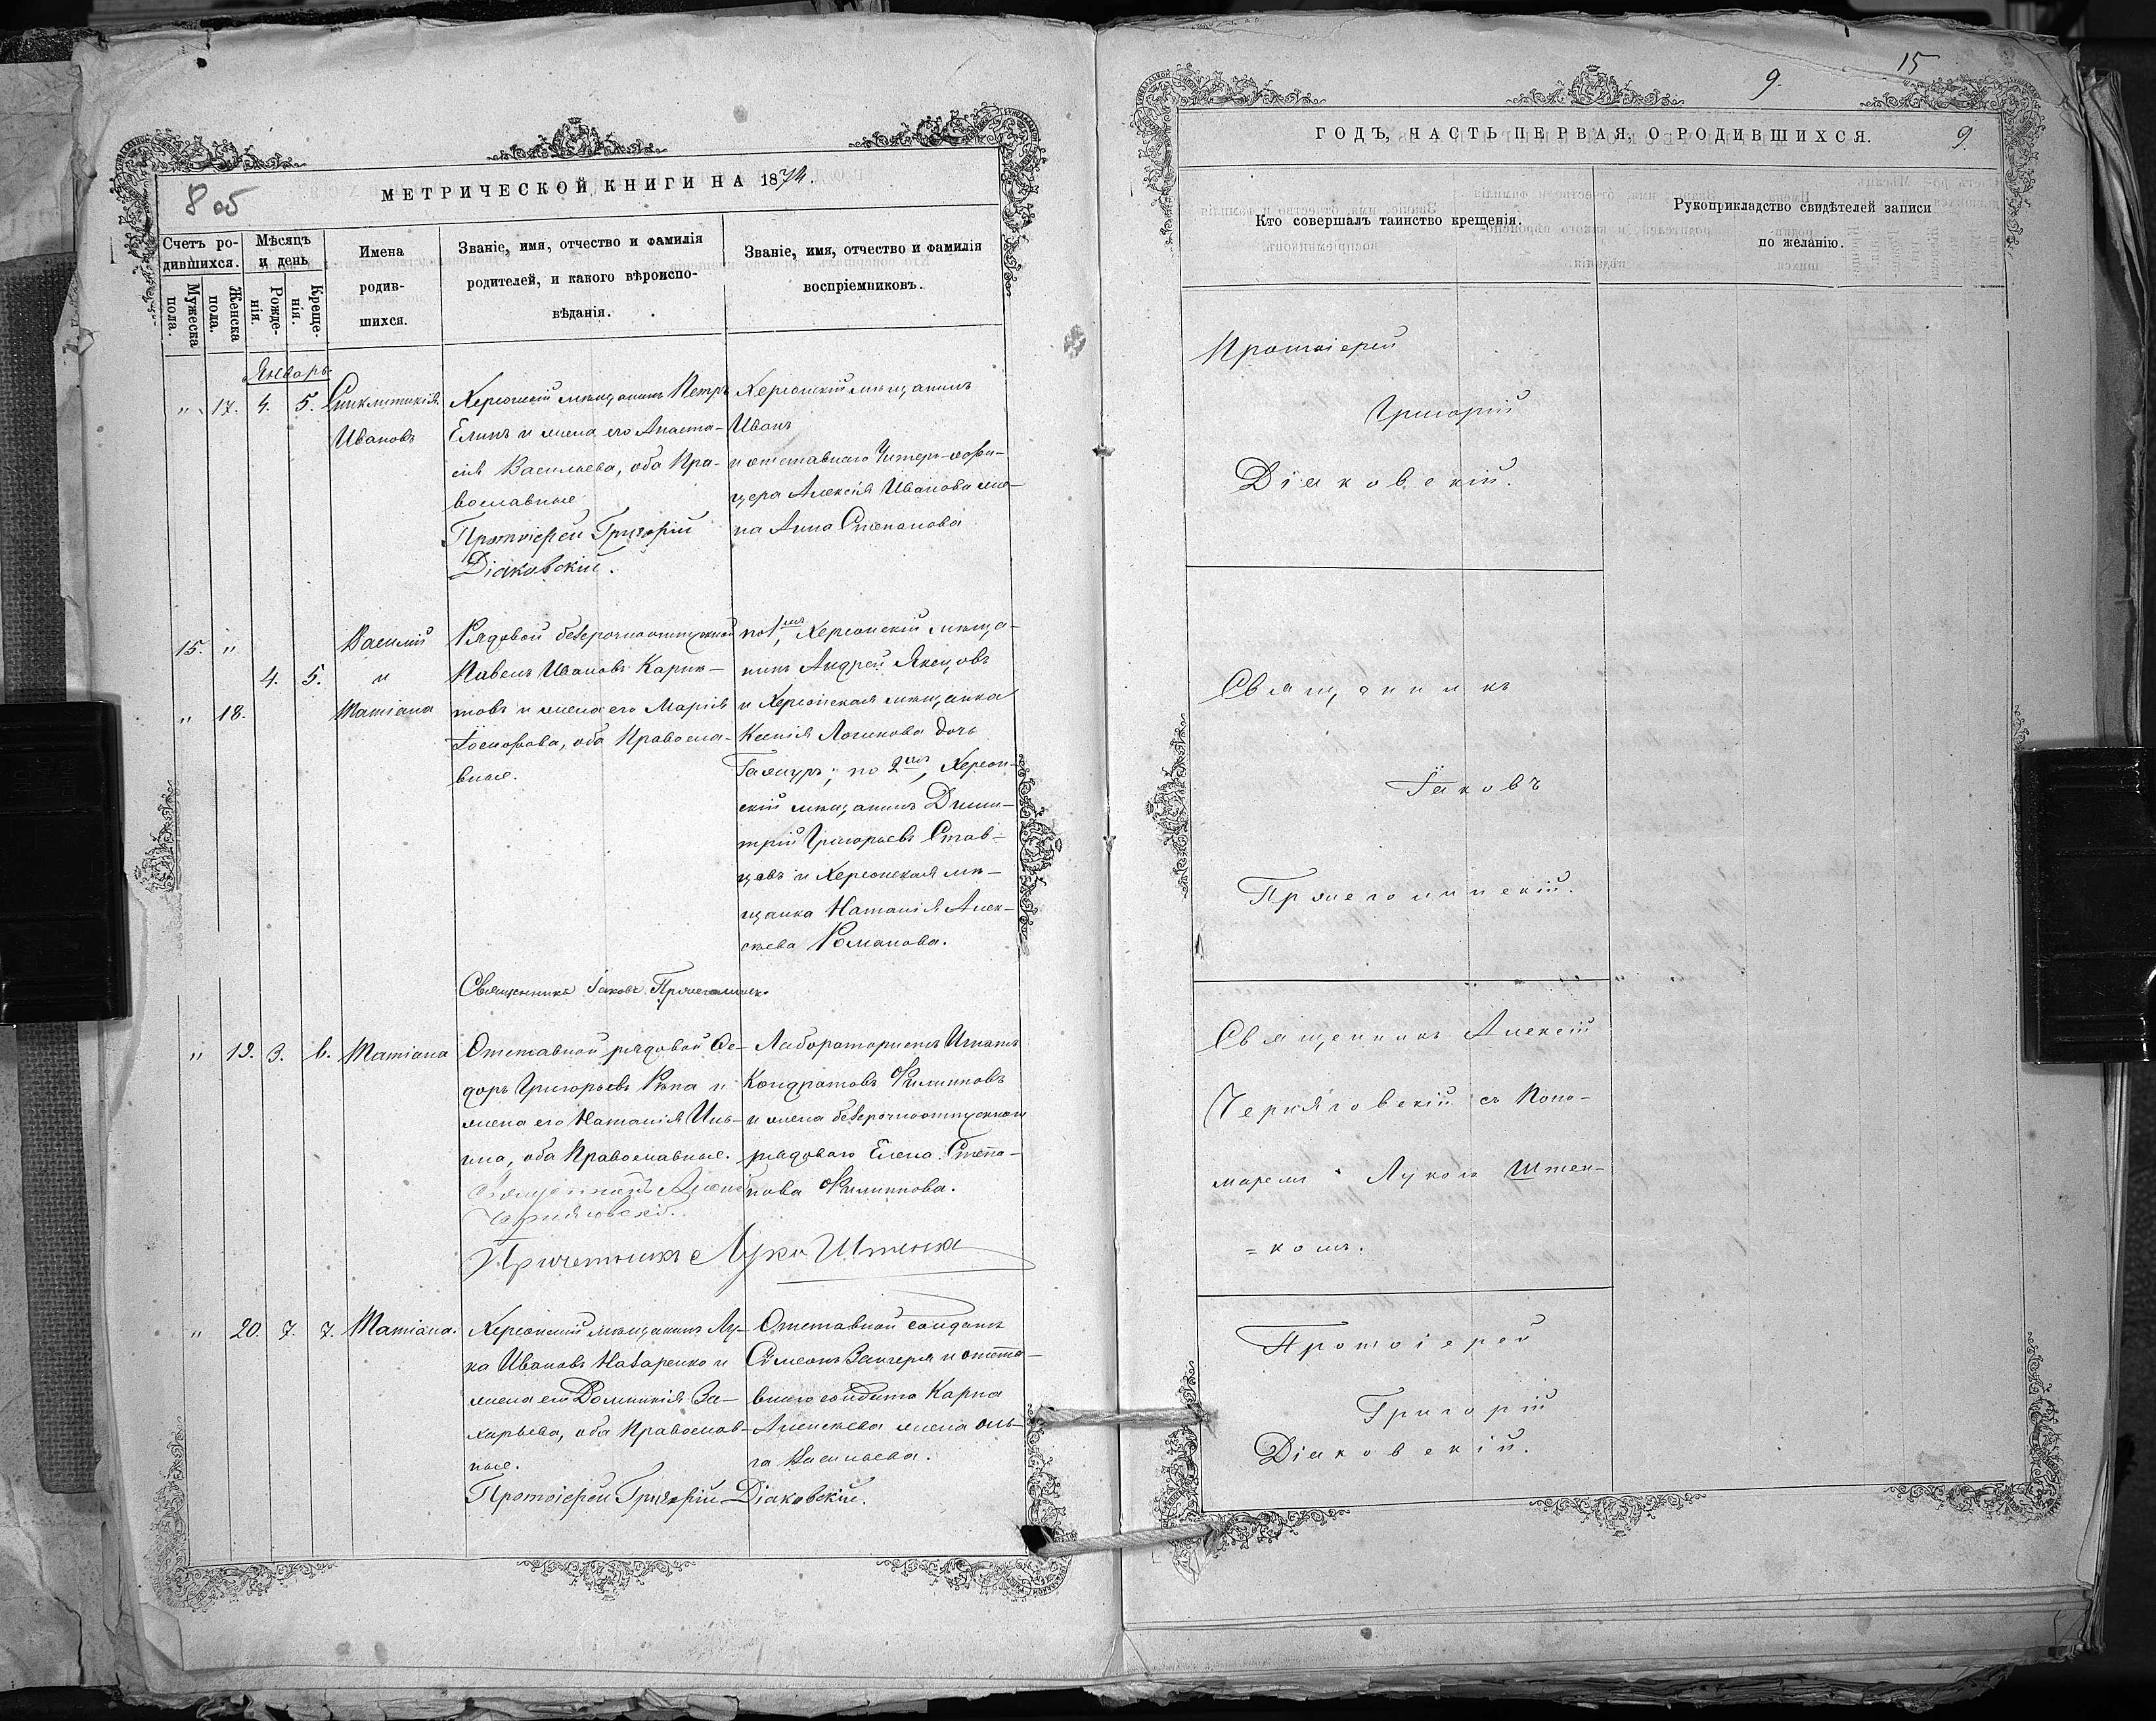 8 об
МЕТРИЧЕСКОЙ КНИГИ НА 1874.
Счетъ ро-
дившихся.
Мужеска
пола.
Женска
пола.
Мѣсяцъ
и день
Рожде-
нія.
Креще-
нія.
Имена
родив-
шихся.
Званіе, имя, отчество и фамилія
родителей, и какого вѣроиспо-
вѣданія.
Званіе, имя, отчество и фамилія
воспріемниковъ.
Январь
" 17. 4. 5. Синклитикія
Ивановъ
Херсонскій мѣщанинъ Петръ
Елинъ и жена его Анаста-
сія Васильева, оба Пра-
вославные
Протоіерей Григорій
Діаковскій.
Херсонскій мѣщанинъ
Иванъ
и отставнаго Унтеръ-офи-
цера Алексія Иванова же-
на Анна Степанова
15. "
4. 5.
" 18.
Василій
и
Татіана
Рядовой безсрочноотпускной
Павелъ Ивановъ
и жена его Марія
оба Правосла-
вные.
по 1му, Херсонскій мѣща-
нинъ Андрей
и Херсонская мѣщанка
Ксенія Логинова дочь
по 2му, Херсон-
скій мѣщанинъ Дими-
трій Григорьевъ Став-
цовъ и Херсонская мѣ-
щанка Наталія Алек-
сѣева Романова.
Священникъ Іаковъ
" 19. 3. 6. Татіана
Отставной рядовой Ѳе-
доръ Григорьевъ Рѣпа и
жена его Наталія Иль-
ина, оба Православные.
Священникъ Алексій
Черняговскій.
Причетникъ Лука Штенко
Лаборатористъ Игнатъ
Кондратовъ Филиповъ
и жена безсрочноотпускнаго
рядоваго Елена Степа-
нова Филиппова.
" 20. 7. 7. Татіана.
Херсонскій мѣщанинъ Лу-
ка Ивановъ Назаренко и
жена его Домникія За-
харьева, оба Православ-
ные.
Протоіерей Григорій Діаковскій.
Отставной солдатъ
Симеонъ и отста-
внаго солдата Карпа
Алексѣева жена Оль-
га Васильева.
9. 15
ГОДЪ, ЧАСТЬ ПЕРВАЯ, О РОДИВШИХСЯ. 9
Кто совершалъ таинство крещенія.
Рукоприкладство свидѣтелей записи
по желанію.
Протоіерей
Григорій
Діаковскій.
Священникъ
Іаковъ
Священникъ Алексій
Черняговскій съ Поно-
маремъ Лукою Штен-
= комъ.
Протоіерей
Григорій
Діаковскій.